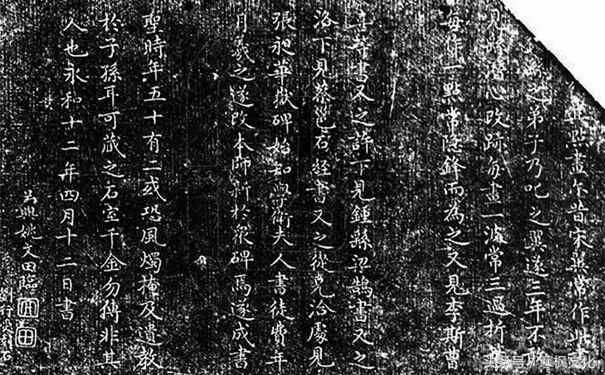 點畫尔昔宋翼常作此
之弟子乃叱之翼遂三年不敢
見繇潛心改跡每畫一波常三過折筆
每作一點常隱鋒而為之又見李斯曹
喜等書又之許下見鍾繇梁鵠書又之
洛下見蔡邕石經書又之從兄洽處見
張昶華嶽碑始知學衛夫人書徒費年
月羲之遂改本師新於衆碑焉遂成書
聖時年五十有二或恐風燭掩及遺教
於子孫耳可藏之石室千金勿傳非其
人也永和十二年四月十二日書
吳興姚文田臨
头条号